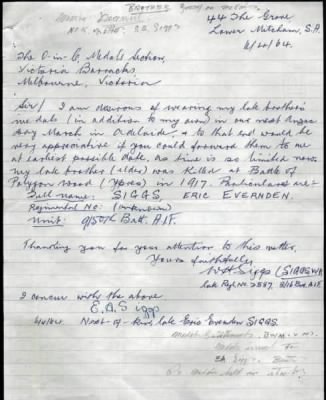 BROTHER
N.O.K. Mother: E.A. Siggs
44 The Grove
Lower Mitcham, S.A.
6/4/64.
The O-in-C, Medals Section,
Victoria Barracks,
Melbourne, Victoria
Sir/ I am desirous of wearing my late brother's
medals (in addition to my own) in our next Anzac
Day March in Adelaide, & to that end would be
very appreciative if you could forward them to me
at earliest possible date, as time is so limited now.
My late brother (elder) was killed at Battle of
Polygon Wood (Ypres) in 1917. Particulars are:-
Full name: SIGGS, ERIC EVERNDEN.
Regimental No: (unknown)
Unit: 9/50th Batt. A.I.F.
Thanking you for your attention to this matter,
Yours faithfully
WH Siggs (SIGGS WH
late Regt. No 2587.
I concur with the above
E.A. Siggs
6/4/64. Next-of-Kin, late Eric Evernden SIGGS